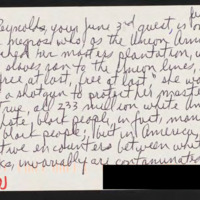 Reynolds, your June 3rd guest, is
negress who, as the Union Army
her master's plantation, w
slaves ran to the Union lines,
free at last, free at last" she wa
a shotgun to protect her master
true, all 233 million white Am
hate black people, in fact, man
black people, but in America,
encounters between white
invariably are contaminated